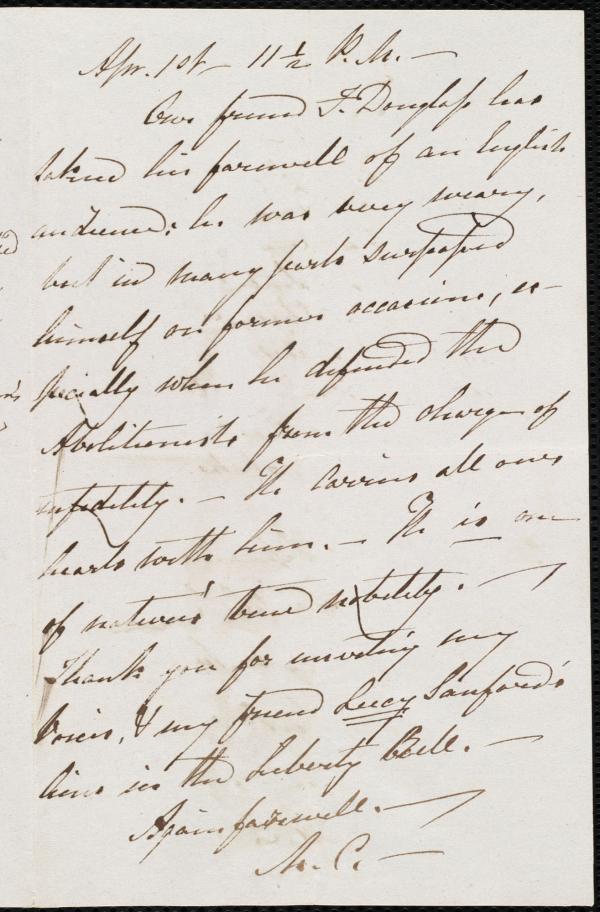 Apr. 1st — 11 1/2 P.M. —
Our friend F. Douglass has
taken his farewell of an English
audience; he was very weary,
but in many parts surpassed
himself on former occasions, es-
pecially when he defended the
Abolitionists from the charge of
infidelity. — He carries all our
hearts with him. — He is one
of nature's true nobility. —
Thank you for inserting my
& my friend Lucy Sanford's
lines in the Liberty Bell. —
Again farewell. —
M. C. —